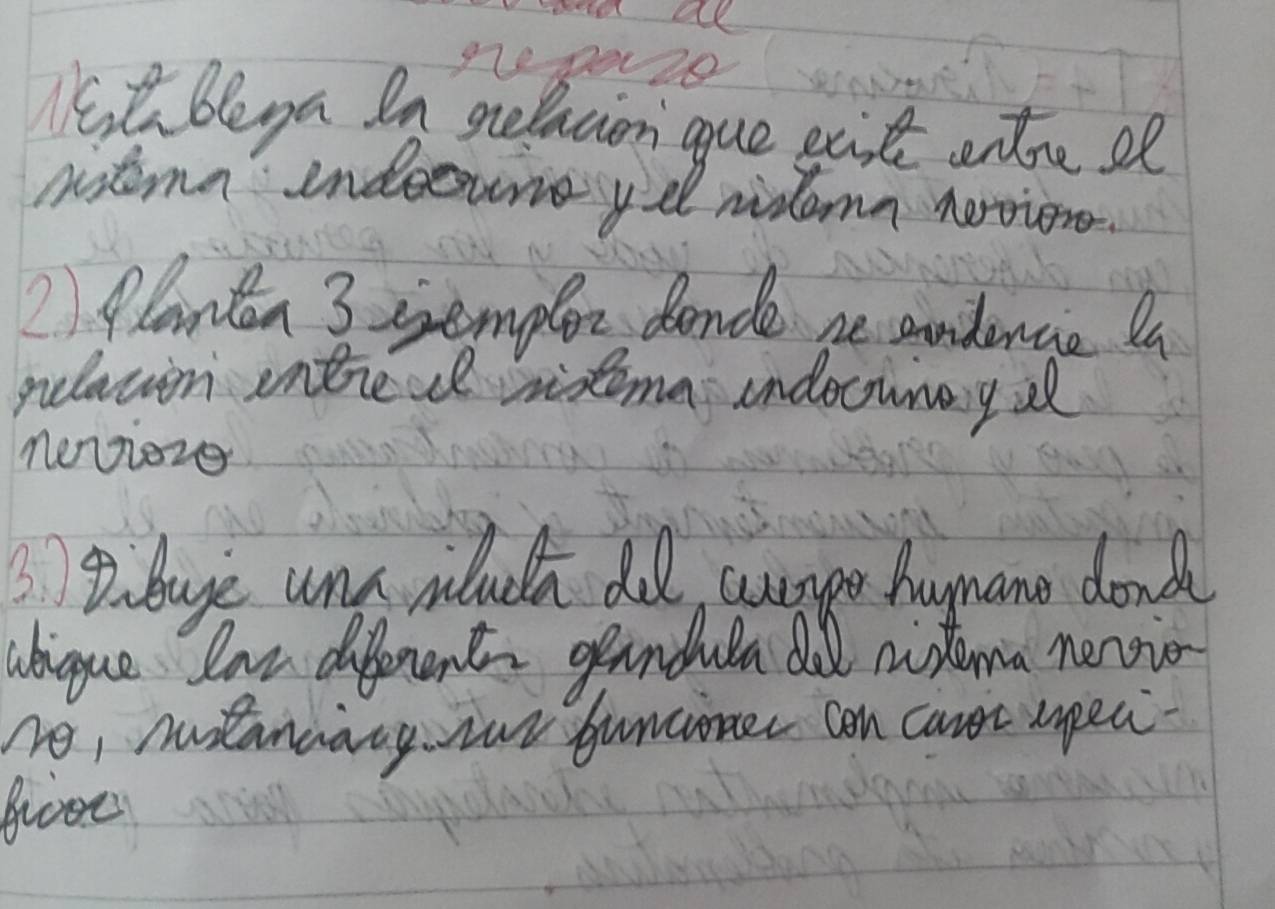 de
repazo
1) Establezca la relación que existe entre el
sistema endocrino y el sistema nervioso.
2) Plantea 3 ejemplos donde se evidencie la
relación entre el sistema endocrino y el
nervioso
3.) Dibuje una silueta del cuerpo humano donde
ubique las diferentes glandula del sistema nervio-
so, sustancias y sus funciones con casos especi-
ficos